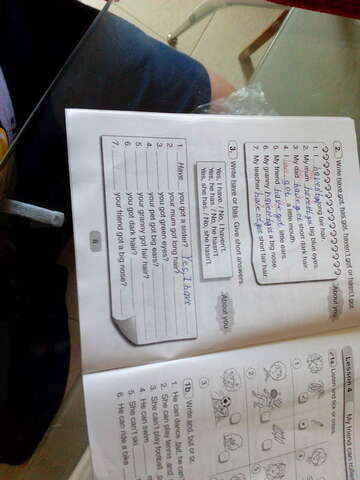 2. Write have got, has got, haven't got or hasn't got.
About you
1. I haven't got long fair hair.
2. My mum big blue eyes.
3. My dad short dark hair.
4. I got a little mouth.
5. My friend little ears.
6. My granny a big nose.
7. My teacher short fair hair.
3. Write have or has. Give short answers.
About you
Yes, I have. / No, I haven't.
Yes, he has. / No, he hasn't.
Yes, she has. / No, she hasn't.
1. Have you got a sister? Yes, I have
2. your mum got long hair?
3. you got green eyes?
4. your pet got big ears?
5. your granny got fair hair?
6. you got dark hair?
7. your friend got a big nose?
8
Lesson 4 My friend can
1a. Listen and tick or cross.
1
2
3
4
5
1b. Write and, but or or.
1. He can dance, but he can
2. She can play tennis and
3. She can't play football
4. He can swim
5. She can't ski
6. He can ride a bike